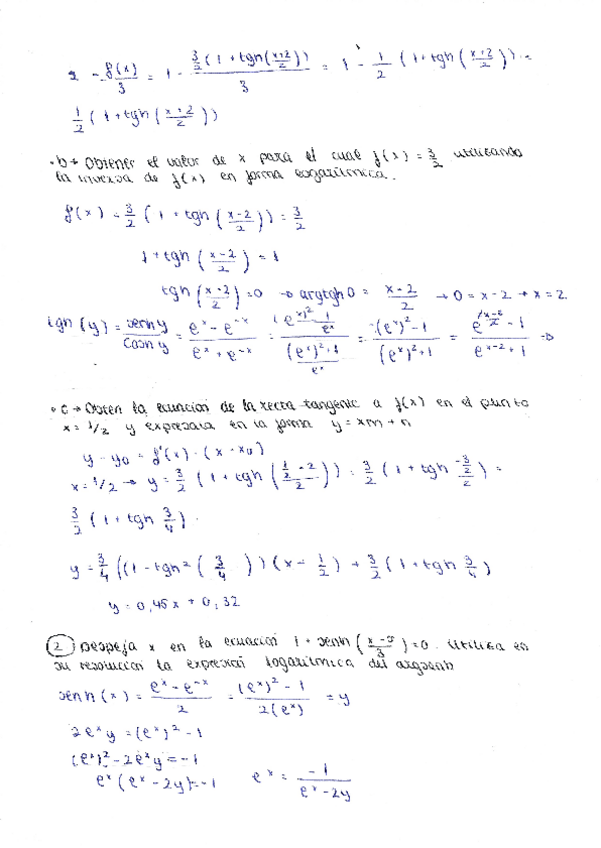 1 - f(x)/3 = 1 - 3/2 (1 + tgh((x+2)/2)) / 3 = 1 - 1/2 (1 + tgh((x+2)/2)) =
1/2 (1 + tgh((x+2)/2))
• b → Obtener el valor de x para el cual f(x) = 3/2 utilizando
la inversa de f(x) en forma logarítmica.
f(x) = 3/2 (1 + tgh((x-2)/2)) = 3/2
1 + tgh((x-2)/2) = 1
tgh((x-2)/2) = 0 → argtgh 0 = (x-2)/2 → 0 = x-2 → x = 2.
tgh(y) = senh y / cosh y = (e^x - e^-x) / (e^x + e^-x) = (((e^x)^2 - 1)/e^x) / (((e^x)^2 + 1)/e^x) = ((e^x)^2 - 1) / ((e^x)^2 + 1) = - 1 / (e^(x-2) + 1) →
• c → Obten la ecuacion de la recta tangente a f(x) en el punto
x = 1/2 y expresala en la forma y = xm + n
y - y0 = f'(x) · (x - x0)
x = 1/2 → y = 3/2 (1 + tgh((1/2 - 2)/2)) = 3/2 (1 + tgh((-3/2)/2)) =
3/2 (1 + tgh 3/4).
y = 3/4 ((1 - tgh²(3/4))(x - 1/2) + 3/2 (1 + tgh 3/4)
y = 0,45x + 0,32
2 Despeja x en la ecuacion 1 + senh( /3) = 0. Utiliza en
su resolución la expresión logarítmica del argsenh
senh(x) = (e^x - e^-x)/2 = ((e^x)^2 - 1)/(2(e^x)) = y
2e^x y = (e^x)^2 - 1
(e^x)^2 - 2e^x y = -1
e^x (e^x - 2y) = -1 e^x = -1/(e^x - 2y)